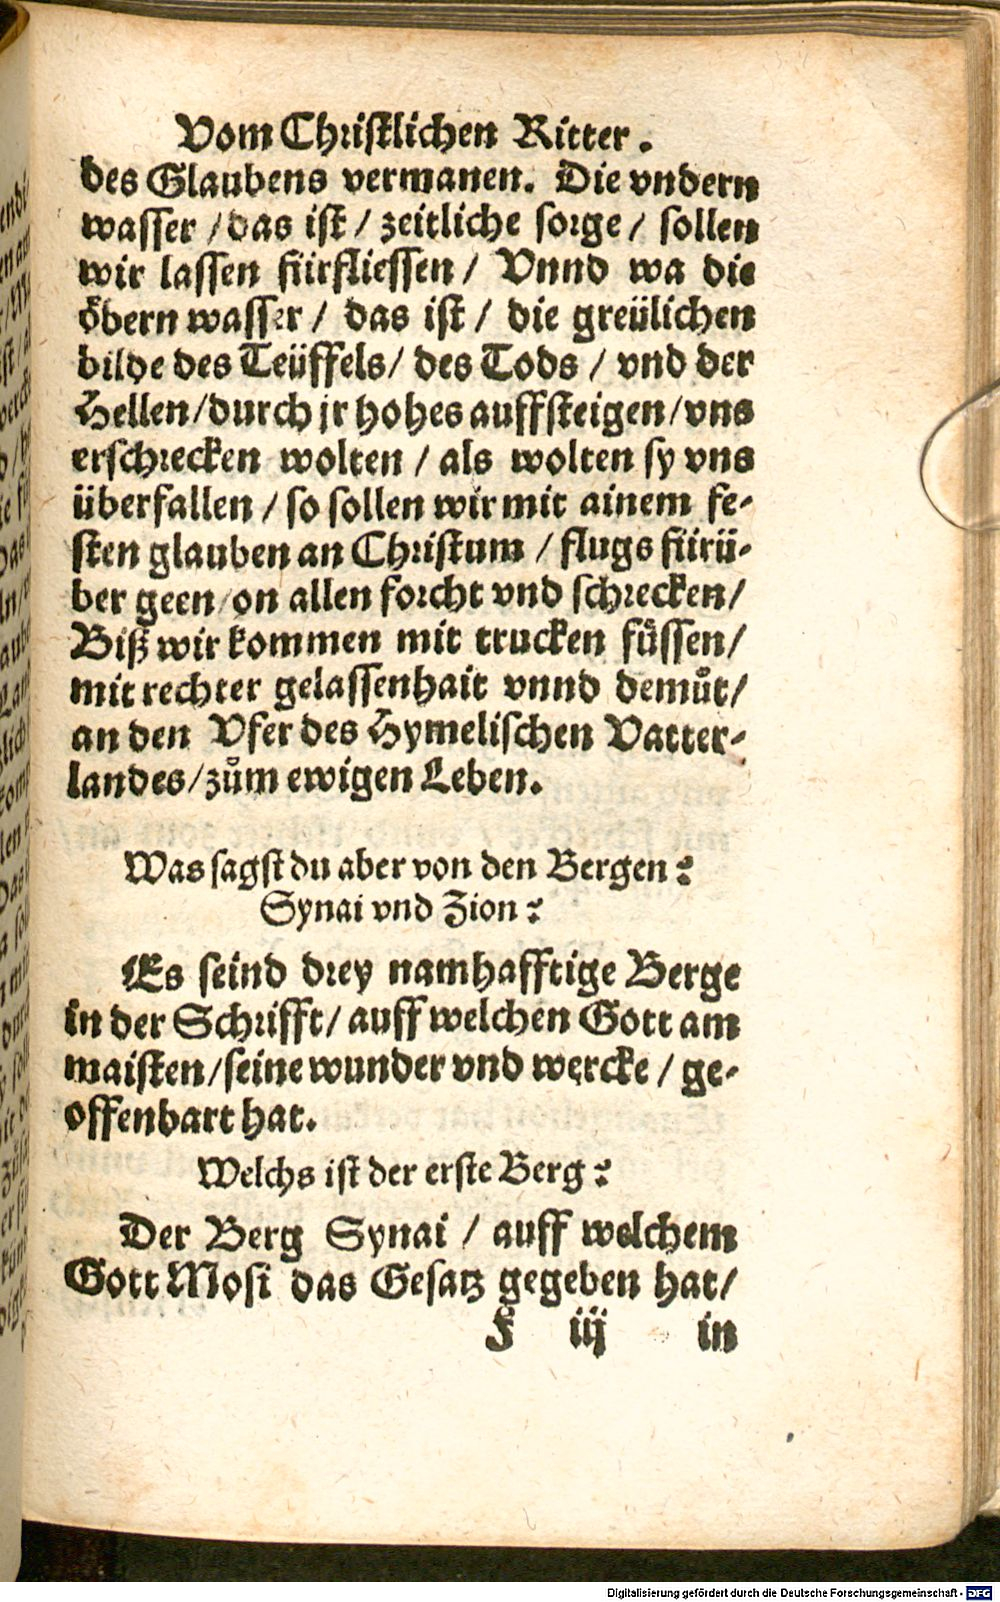 Vom Christlichen Ritter.
des Glaubens vermanen. Die vndern
wasser / das ist / zeitliche sorge / sollen
wir lassen fürfliessen / Vnnd wa die
öbern wasser / das ist / die greülichen
bilde des Teüffels / des Tods / vnd der
Hellen / durch jr hohes auffsteigen / vns
erschrecken wolten / als wolten sy vns
überfallen / so sollen wir mit ainem fe-
sten glauben an Christum / flugs fürü-
ber geen / on allen forcht vnd schrecken /
Biß wir kommen mit trucken fůssen /
mit rechter gelassenhait vnnd demůt /
an den Vfer des Hymelischen Vatter-
landes / zům ewigen Leben.
Was sagst du aber von den Bergen?
Synai vnd Zion?
Es seind drey namhafftige Berge
in der Schrifft / auff welchen Gott am
maisten / seine wunder vnd wercke / ge-
offenbart hat.
Welchs ist der erste Berg?
Der Berg Synai / auff welchem
Gott Mosi das Gesatz gegeben hat /
F iij in
Digitalisierung gefördert durch die Deutsche Forschungsgemeinschaft - DFG